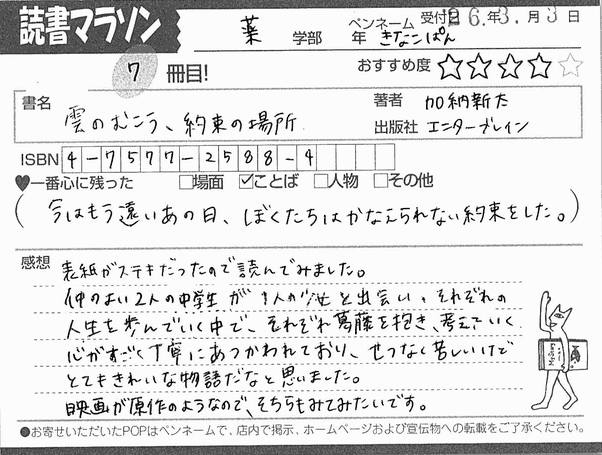 読書マラソン
薬 学部 年
ペンネーム きなこぱん
受付日 26.年3.月3日
7 冊目!
おすすめ度 ☆☆☆☆☆
書名 雲のむこう、約束の場所
著者 加納新太
出版社 エンターブレイン
ISBN 4-7577-2588-4
♥一番心に残った □場面 ☑ことば □人物 □その他
(今はもう遠いあの日、ぼくたちはかなえられない約束をした。)
感想 表紙がステキだったので読んでみました。
仲のよい2人の中学生が1人の少女と出会い、それぞれの
人生を歩んでいく中で、それぞれ葛藤を抱き、考えていく
心がすごく丁寧にあつかわれており、せつなく苦しいけど
とてもきれいな物語だなと思いました。
映画が原作のようなので、そちらもみてみたいです。
●お寄せいただいたPOPはペンネームで、店内で掲示、ホームページおよび宣伝物への転載をご了承ください。